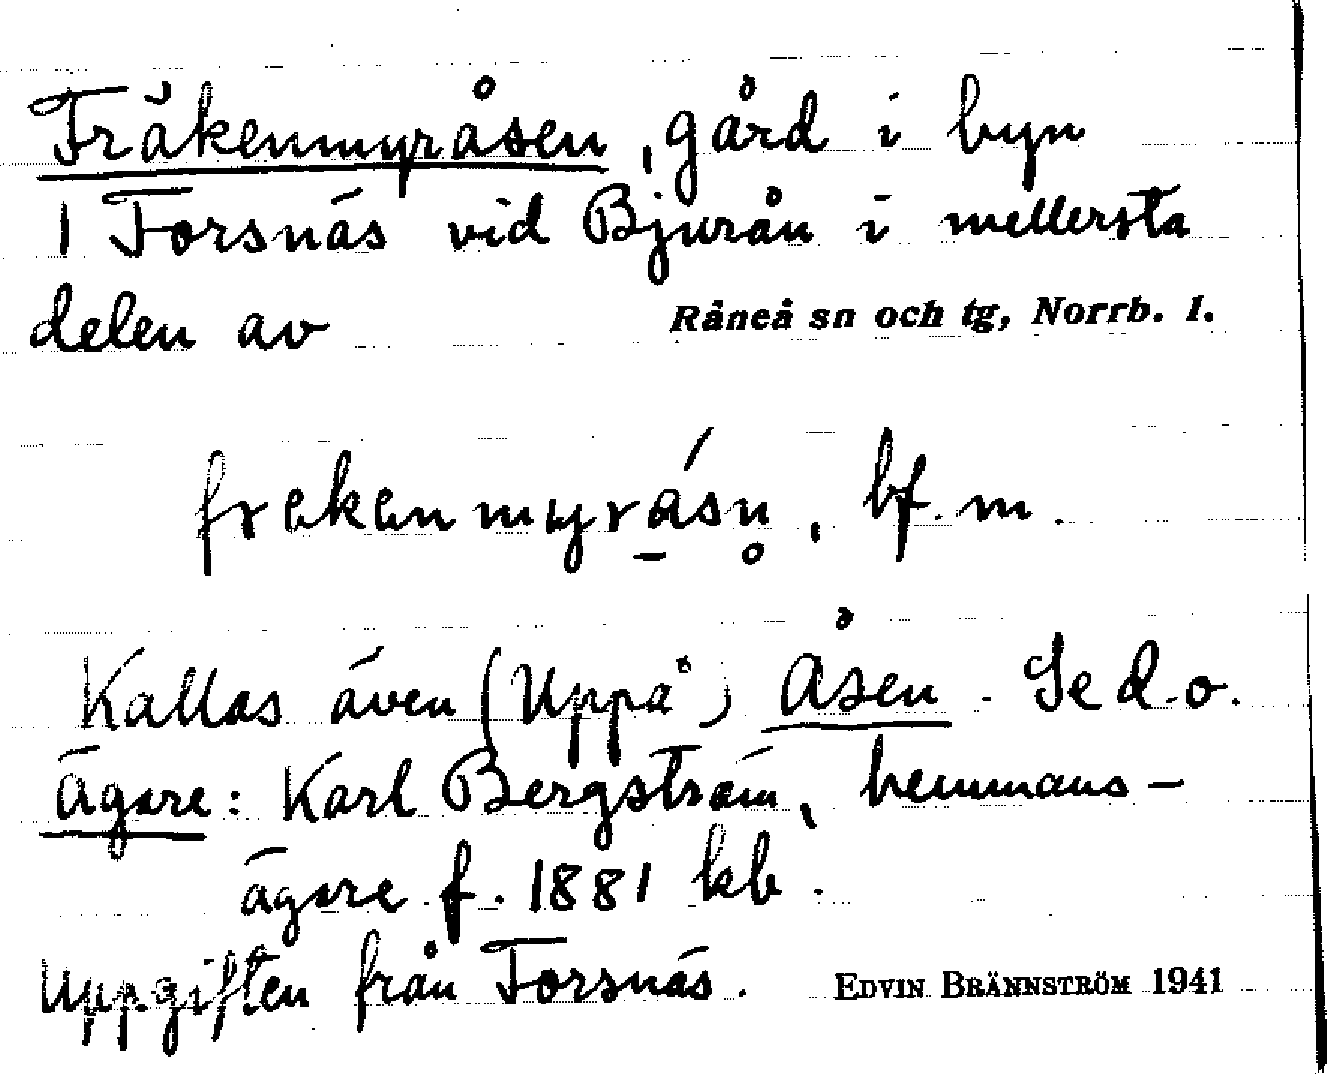 Fräkenmyråsen, gård i byn
1 Forsnäs vid Bjurån i mellersta
delen av Råneå sn och tg, Norrb. l.
frekenmyrǻsn̥, bf. m.
Kallas även (Uppå) Åsen. Se d.o.
Ägare: Karl Bergström, hemmans-
ägare f. 1881 kb.
Uppgiften från Forsnäs. EDVIN BRÄNNSTRÖM 1941